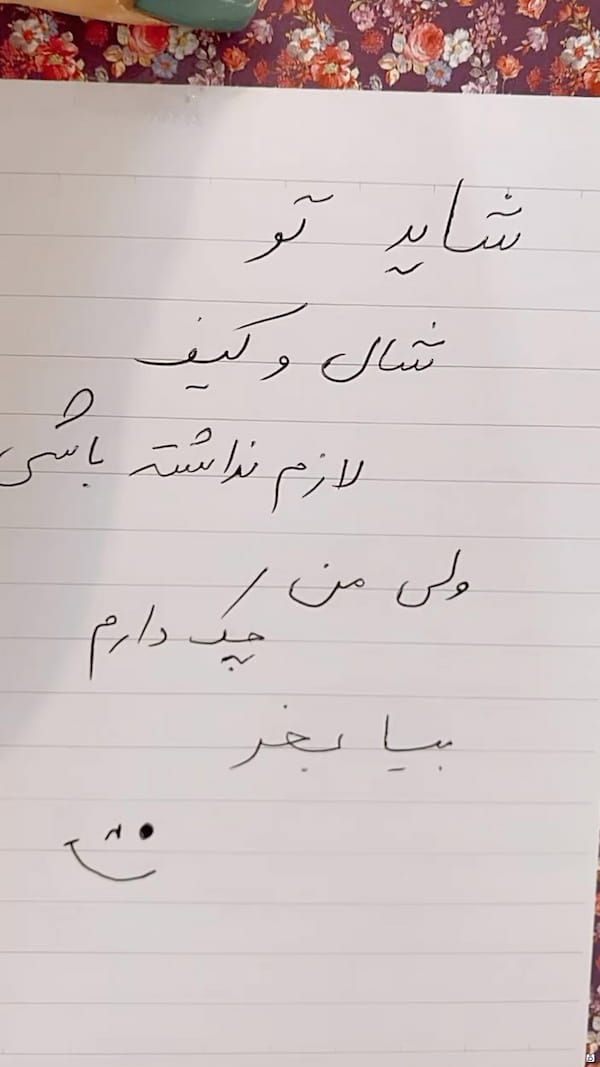 شاید تو
شال و کیف
لازم نداشته باشی
ولی من
چک دارم
بیا بخر